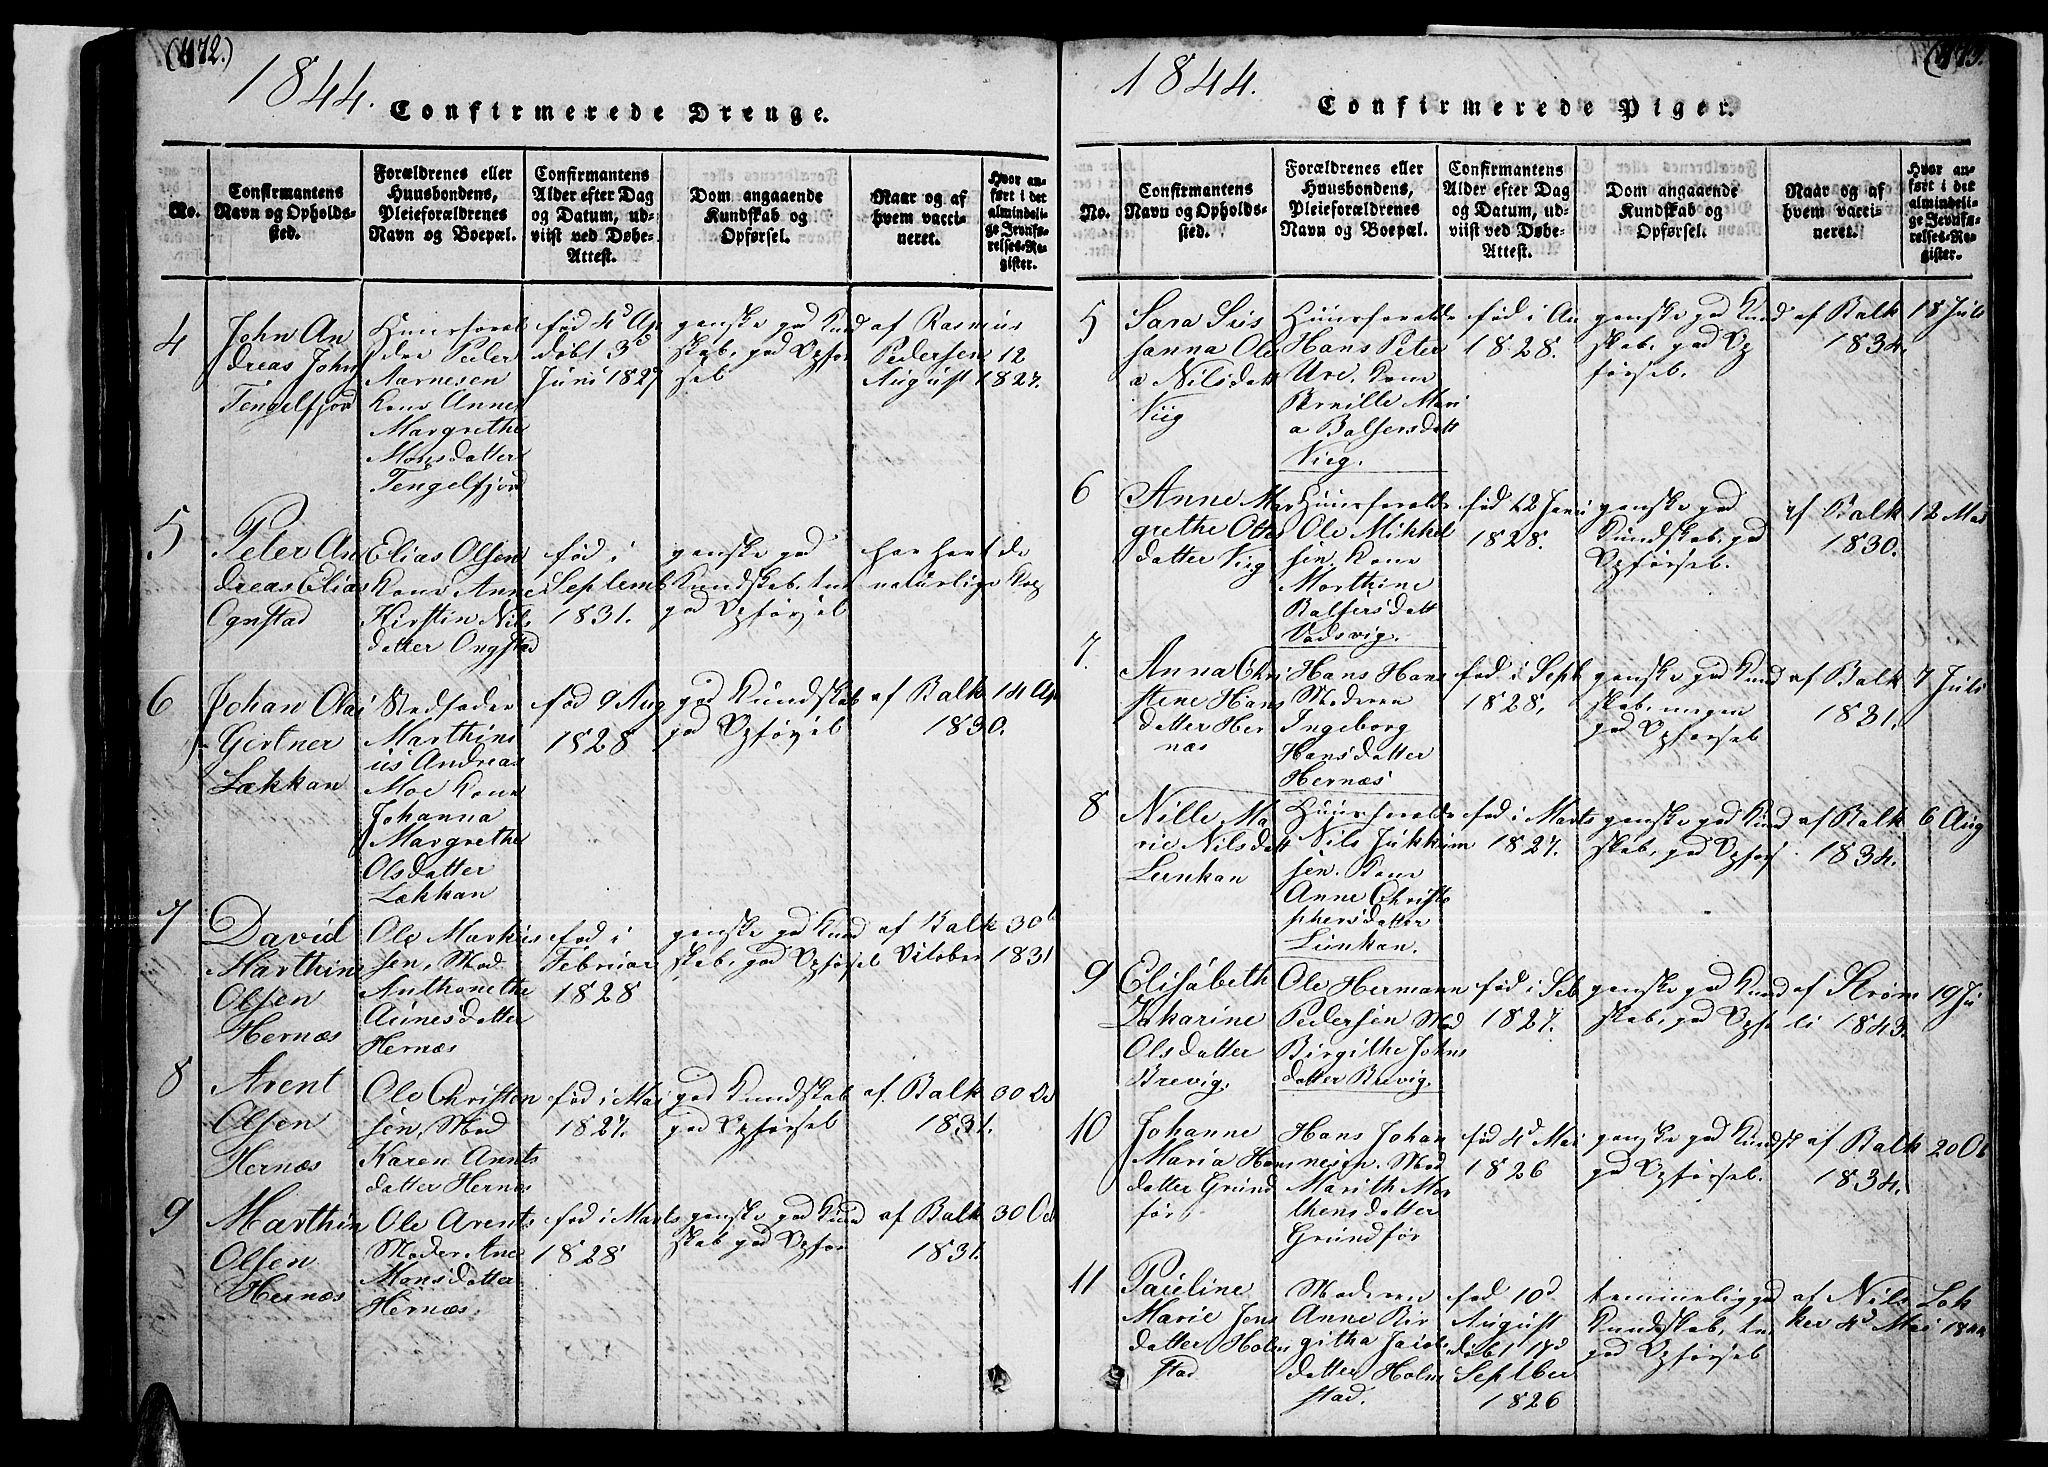 (472.)
1844.
Confirmerede Drenge.
No.
Confirmantens
Navn og Opholds-
sted.
Forældrenes eller
Huusbondens,
Pleieforældrenes
Navn og Boepæl.
Confirmantens
Alder efter Dag
og Datum, ud-
viist ved Døbe-
Attest.
Dom angaaende
Kundskab og
Opførsel.
Naar og af
hvem vacci-
neret.
Hvor an-
ført i det
almindeli-
ge Jevnfø-
relses-Re-
gister.
4
John An
dreas John
Tengelfjord
Huusforæl
dre Peder
Aarnesen
Kone Anne
Margrethe
Monsdatter
Tengelfjord
fød 4d Ap
døbt 3d
Juni 1827
ganske god Kund
skab, god Opfør
sel
af Rasmus
Pedersen 12
August 1827.
5
Peter An
dreas Elias
Ognstad
Elias Olsen
Kone Anne
Kirstin Nils
datter Ongstad
fød i
Septemb
1831.
ganske god
Kundskab
god Opførsel
har havt de
naturlige Kop
6
Johan Olai
Girtner
Løkkan
Stedfader
Marthini
us Andreas
Moe Kone
Johanna
Margrethe
Olsdatter
Løkkan
fød 9 Aug
1828
god Kundskab
god Opførsel
af Balk 14 Ap
1830.
7
David
Marthin
Olsen
Hernæs
Ole Markus
sen, Mod
Anthonethe
Arnesdatter
Hernæs
fød i
Februar
1828
ganske god Kund
skab, god Opførsel
af Balk 30
October 1831
8
Arent
Olsen
Hernæs
Ole Christen
sen, Mod
Karen Arents
datter Hernæs
fød i Mai
1827.
god Kundskab
god Opførsel
af Balk 30 Oc
1831.
9
Marthin
Olsen
Hernæs
Ole Arents
Moder Ane
Monsdatter
Hernæs.
fød i Marts
1828
ganske god Kund
skab god Opfør
af Balk 30 Oct
1831.
(473.
1844.
Confirmerede Piger.
No.
Confirmantens
Navn og Opholds-
sted.
Forældrenes eller
Huusbondens,
Pleieforældrenes
Navn og Boepæl.
Confirmantens
Alder efter Dag
og Datum, ud-
viist ved Døbe-
Attest.
Dom angaaende
Kundskab og
Opførsel.
Naar og af
hvem vacci-
neret.
Hvor an-
ført i det
almindeli-
ge Jevnfø-
relses-Re-
gister.
5
Sara Sus
sanna Ole
a Nilsdatt
Viig
Huusforældre
Hans Peter
Ure. Kone
Pernille Mari
a Balsersdatt
Vieg.
fød i
1828.
ganske god Kund
skab, god Op
førsel.
af Balk 18 Juli
1834.
6
Anne Mar
grethe Ottes
datter Viig
Huusforældre
Ole Mikkel
sen. Kone
Marthine
Balsersdatt
Vadsvig.
fød 12 Janu
1828.
ganske god
Kundskab, god
Opførsel.
af Balk 12 Mai
1830.
7.
Anna Chri
stene Hans
datter Her
næs
Hans Hans
Moderen
Ingeborg
Hansdatter
Hernæs
fød i Sept
1828,
ganske god Kund
skab, megen
god Opførsel
af Balk 7 Juli
1831.
8
Nille Ma
rie Nilsdatt
Lunkan
Huusforældre
Nils Jukkum
sen. Kone
Anne Christo
phersdatter
Lunkan.
fød i Marts
1827.
ganske god Kund
skab, god Opførs
af Balk 6 Aug
1834.
9
Elisabeth
Zakarine
Olsdatter
Brevig.
Ole Hermann
Pedersen Mod
Birgithe Johns
datter Brevig.
fød i Feb
1827.
ganske god Kund
skab, god Opfø
af Strøm 19 Ju
li 1843.
10
Johanne
Maria Hans
datter Grund
før
Hans Johan
nesen. Mod
Marith Mor
thensdatter
Grundfør
fød 4d Mai
1826
ganske god Kundsk
god Opførsel.
af Balk 20 Oc
1834.
11
Pauline
Marie Jens
datter Holm
stad
Moderen
Anne Bir
githa Jacobs
datter Holm
stad.
fød 10d
August
døbt 17d
Septber
1826
temmelig god
Kundskab,
god Opførsel
af Nils Lok
ker 4d Mai 1844